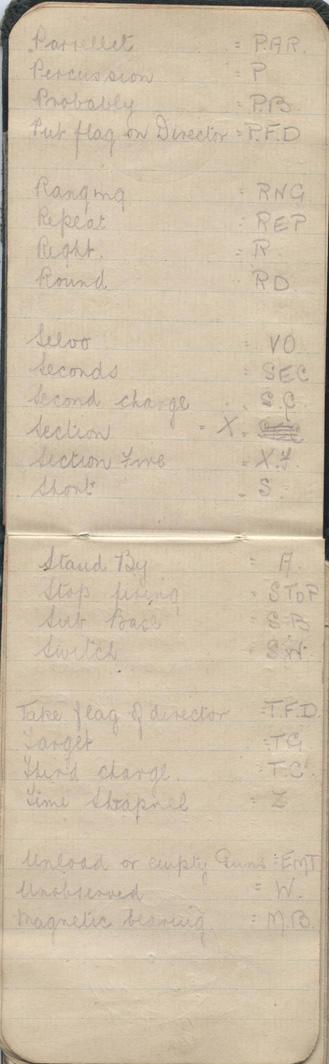 Parrellet = PAR.
Percussion = P
Probably = P.B
Put flag on Director = P.F.D
Ranging = RNG
Repeat = REP
Right. = R
Round = RD.
Selvo = VO
Seconds = SEC
Second charge = S.C
Section = X.
Section Fire = X.F
Short = S.
Stand By = A.
Stop firing = STOP
Sub Base = S.B
Switch = S.W.
Take flag of director = T.F.D.
Target = TG
Third charge. = T.C.
Time Shrapnel = Z
Unload or empty Guns = EMT
Unobserved = W.
Magnetic bearing = M.B.